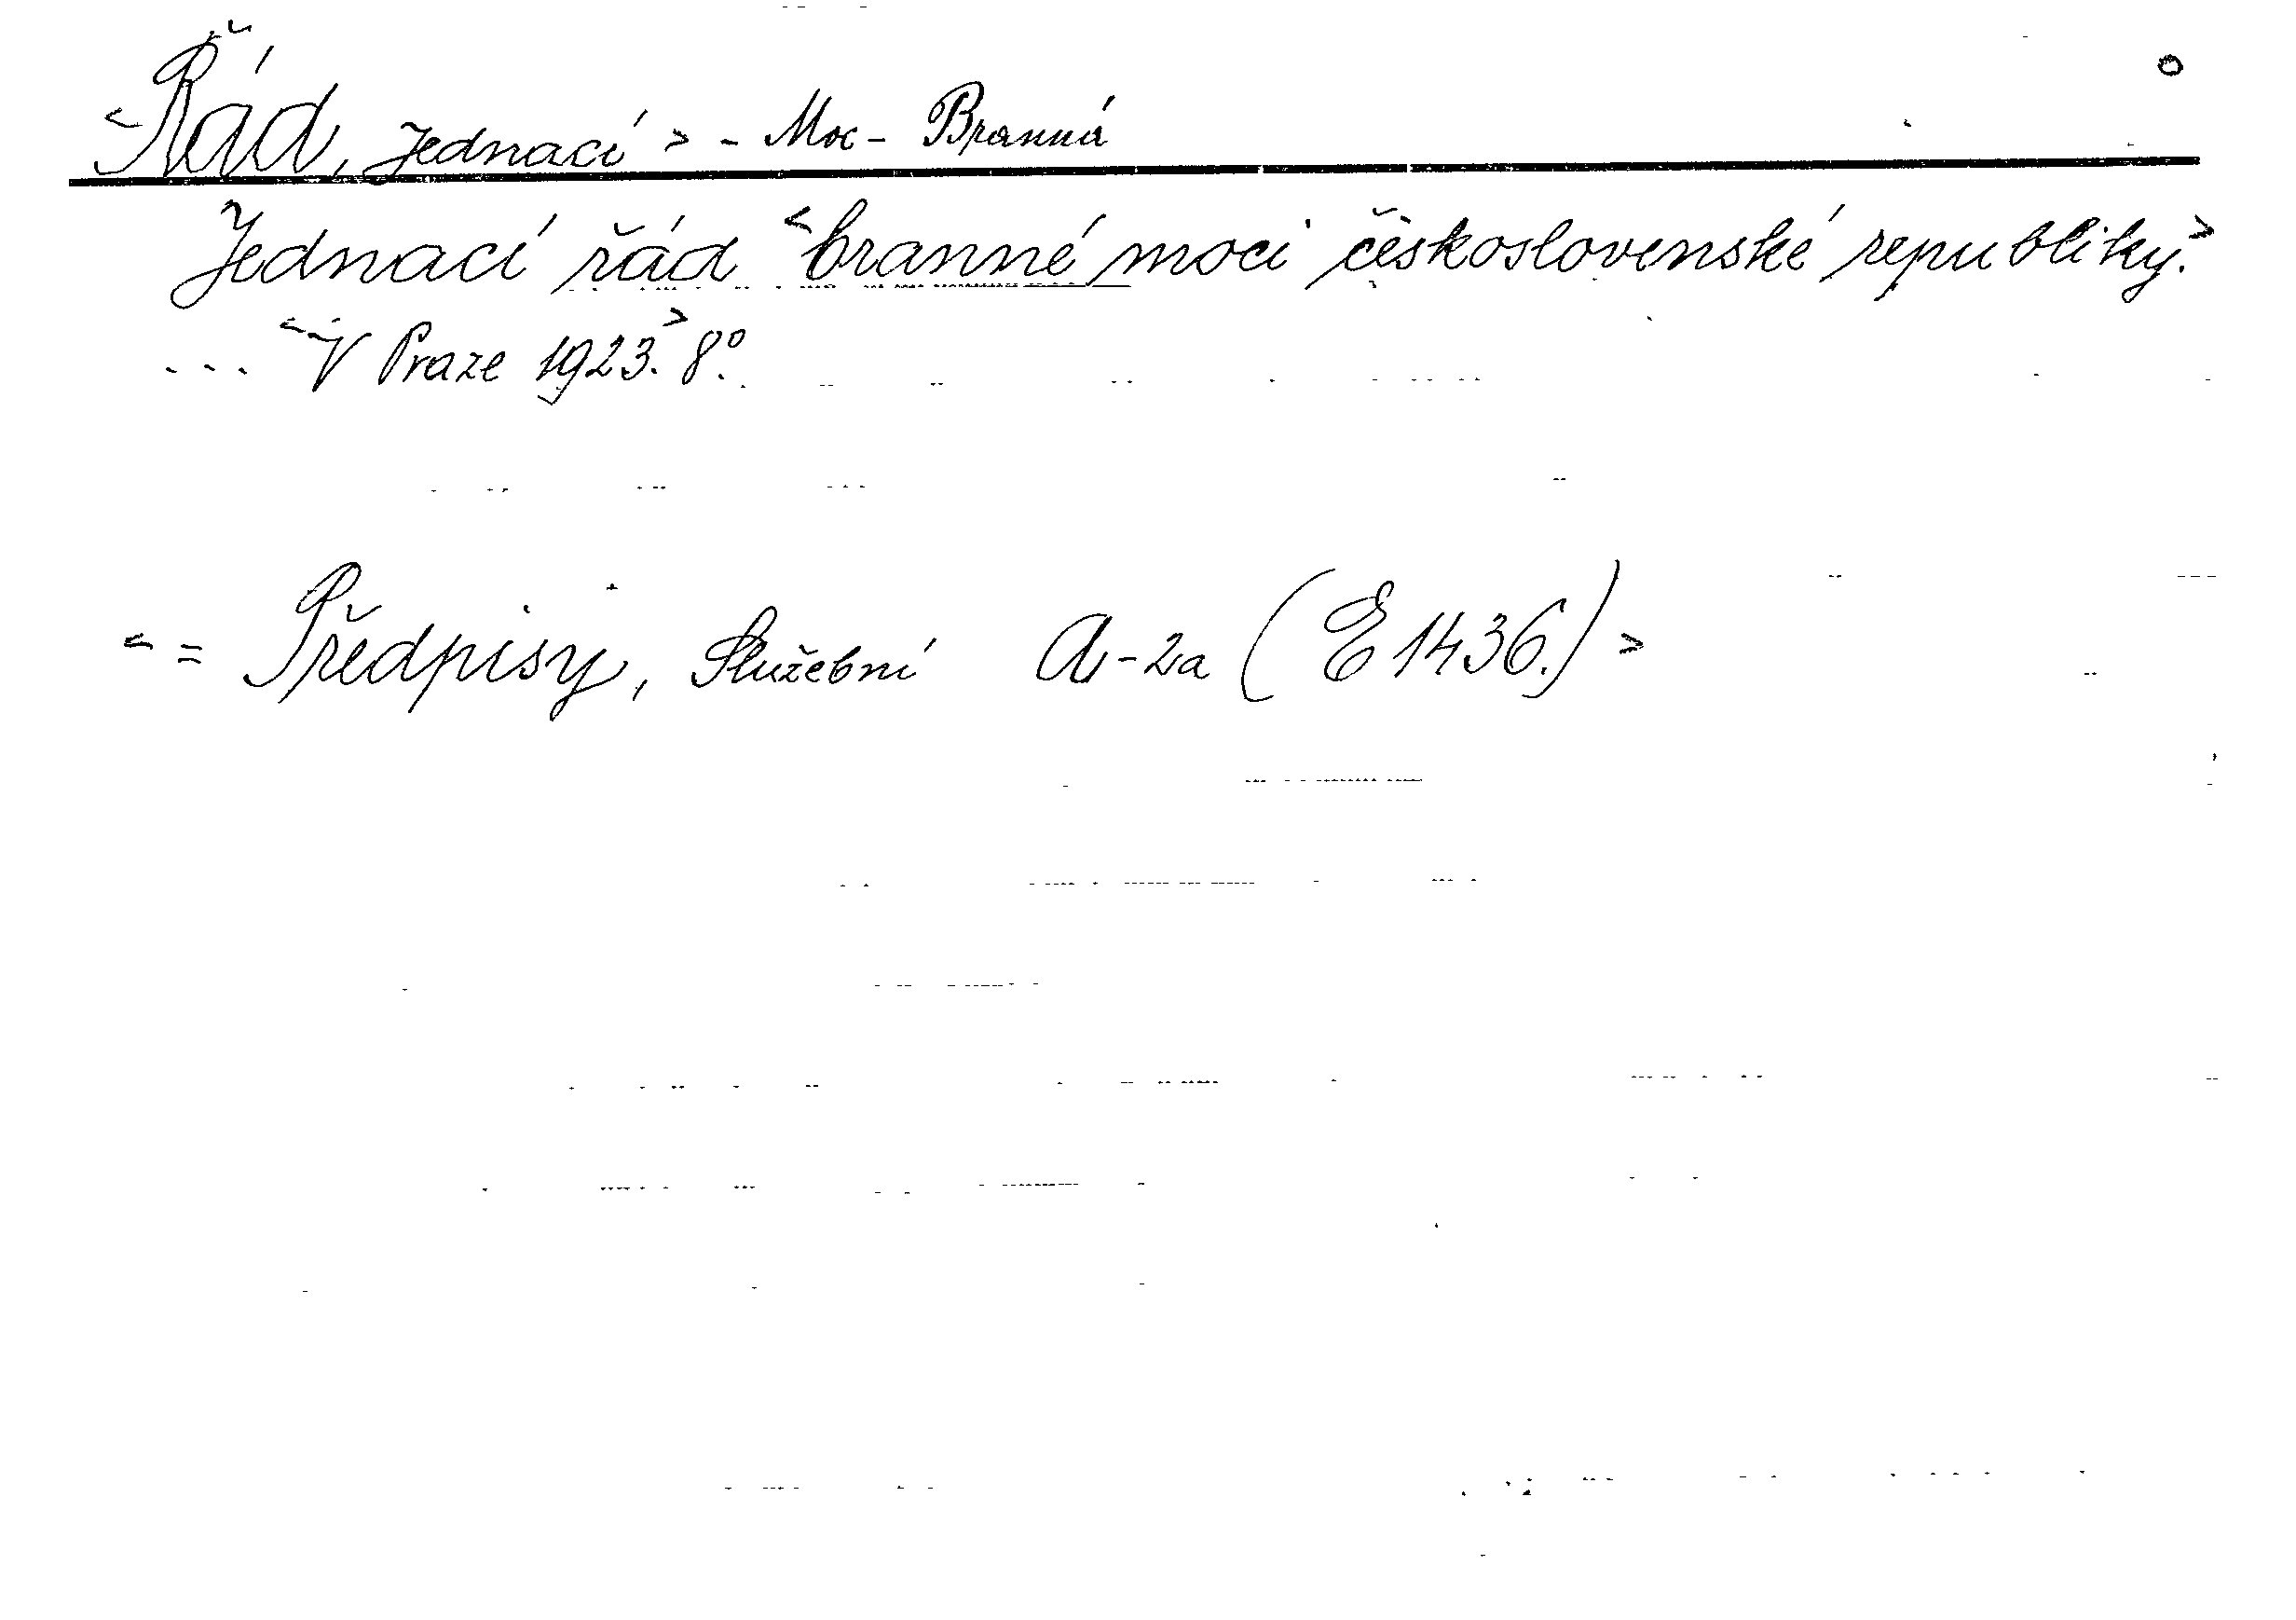 <Řád, Jednací> - Moc - Branná
Jednací řád <branné moci československé republiky.>
... <V Praze 1923.> 8º.
< = Předpisy, Služební A-2a (E 1436.) >